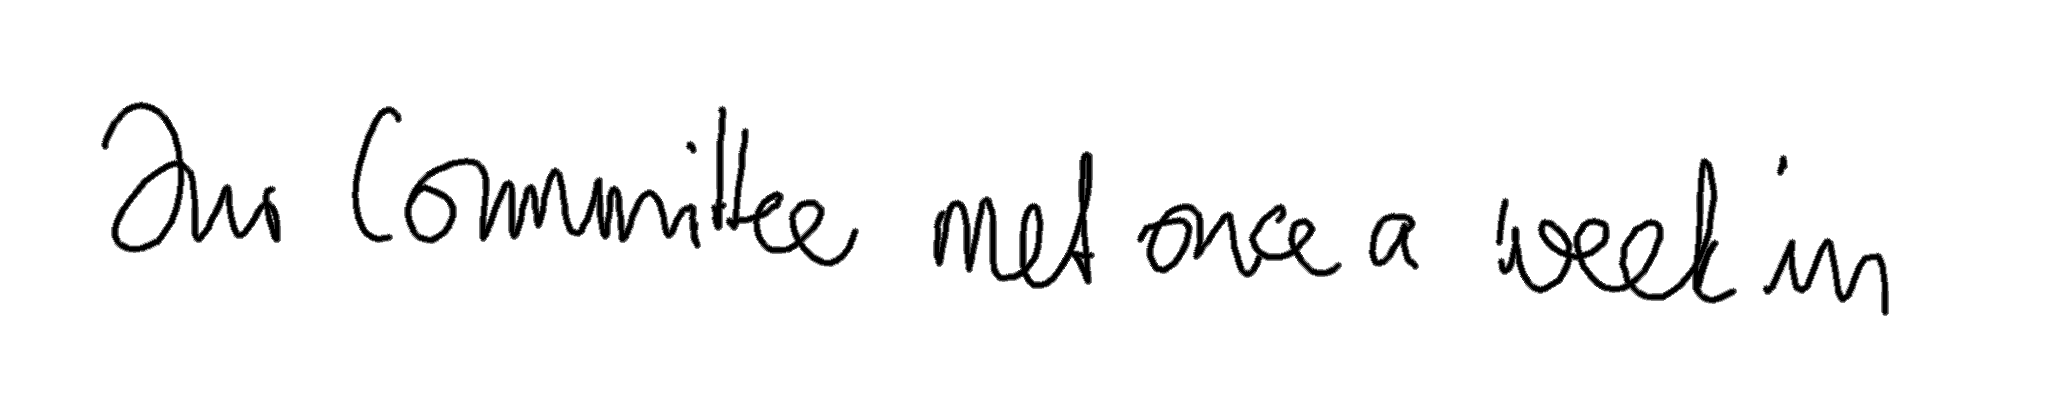 This Committee met once a week in